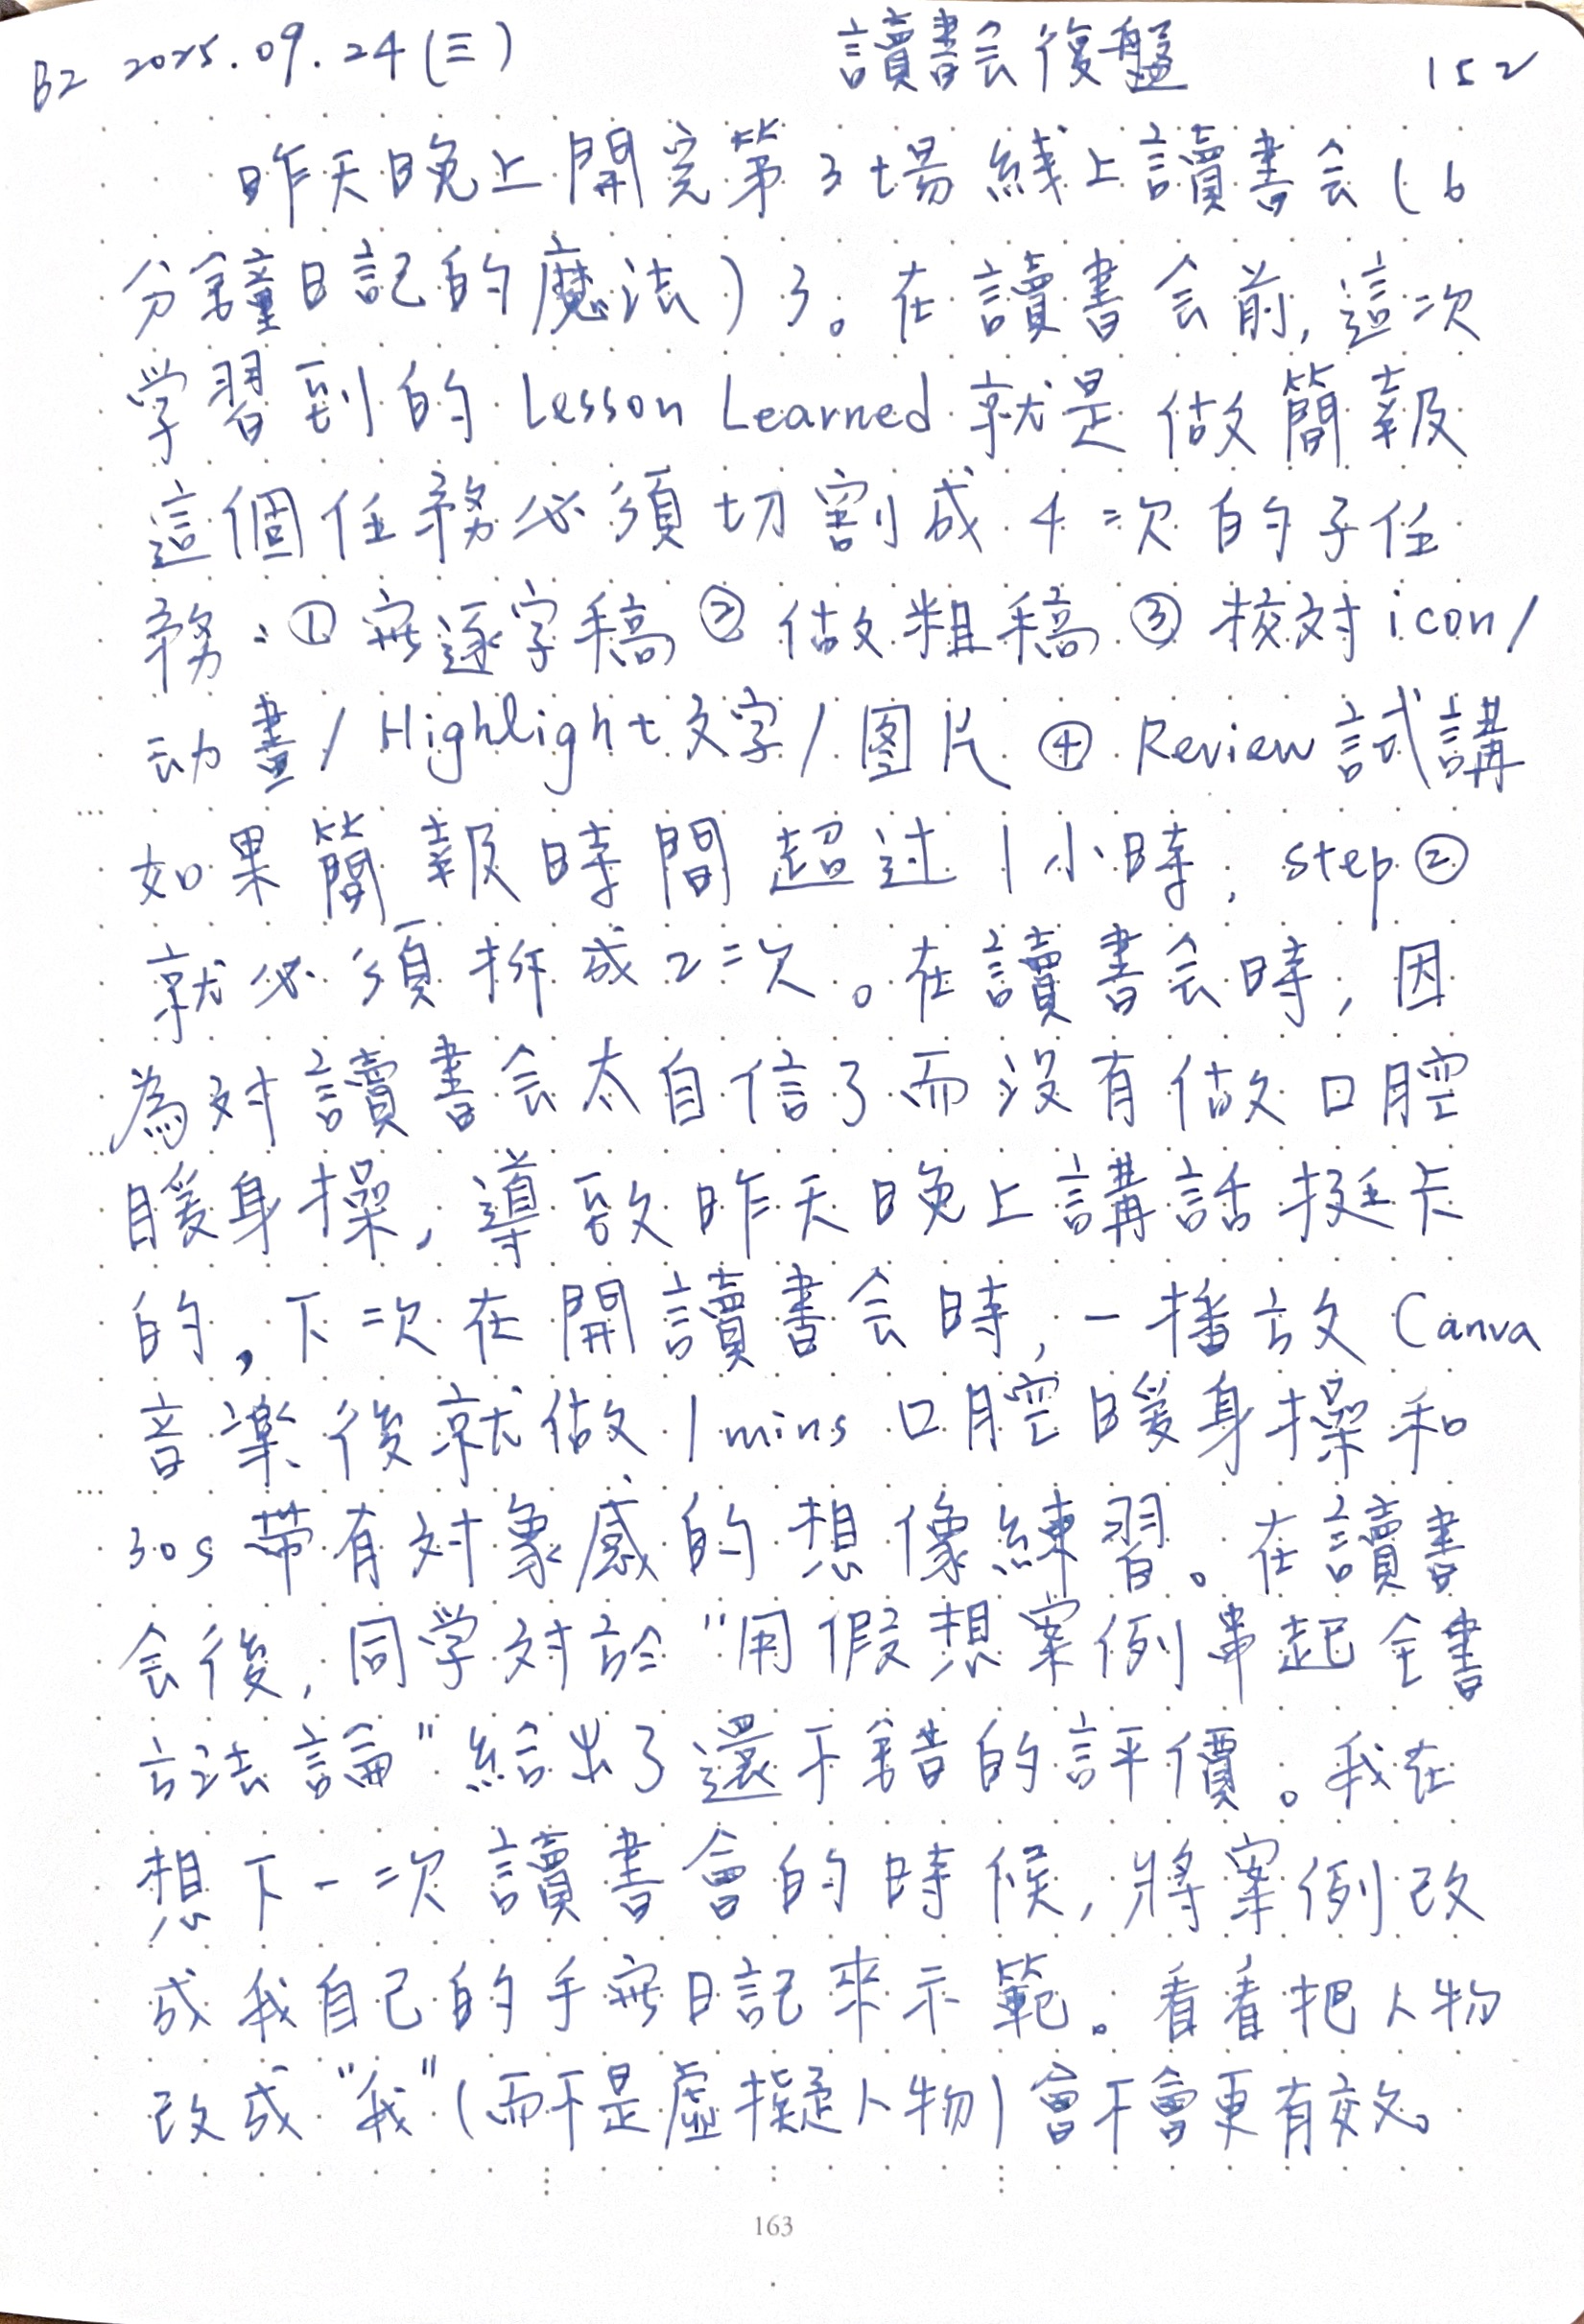 B2 2025.09.24(三) 讀書会後盤 152
昨天晚上開完第3場線上讀書会(6
分鐘日記的魔法)了。在讀書会前,這次
学習到的 Lesson Learned 就是做簡報
這個任務必須切割成4次的子任
務:①寫逐字稿②做粗稿③校对icon/
动畫/Highlight文字/图片④Review試講
如果簡報時間超过1小時,step②
就必須拆成2次。在讀書会時,因
為对讀書会太自信了而没有做口腔
暖身操,導致昨天晚上講話挺卡
的,下次在開讀書会時,一播放Canva
音樂後就做1mins口腔暖身操和
30s带有对象感的想像練習。在讀書
会後,同学对於"用假想案例串起全書
方法論"給出了還不錯的評價。我在
想下一次讀書會的時候,將案例改
成我自己的手寫日記來示範。看看把人物
改成"我"(而不是虛擬人物)會不會更有效。
163